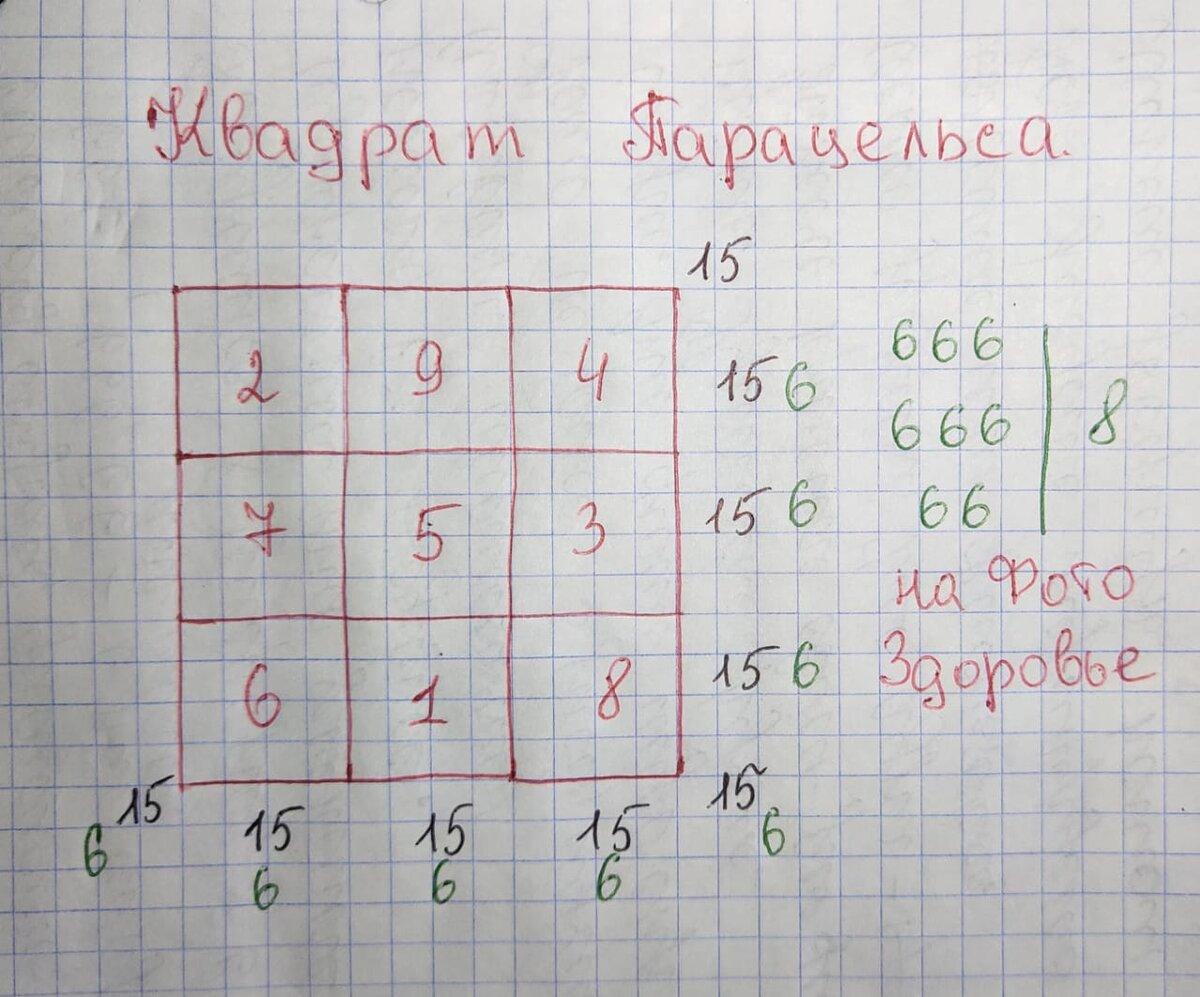 Квадрат Парацельса.
15
2 9 4 15 6 666
7 5 3 15 6 666 8
66
на Фото
6 1 8 15 6 Здоровье
15 15 15 15 15
6 6 6 6 6